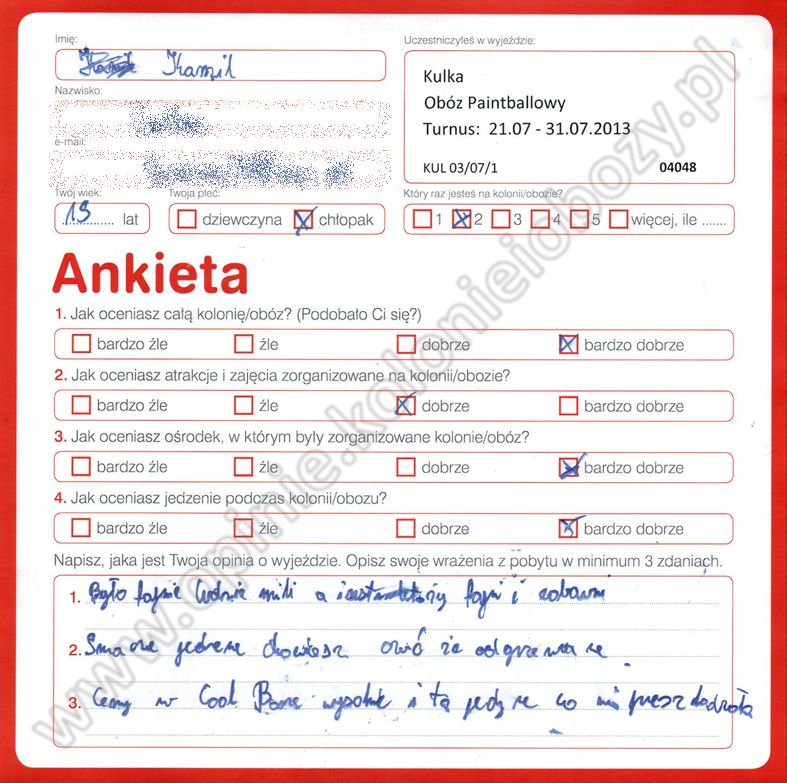 Imię:
Uczestniczyłeś w wyjeździe:
Kamil
Kulka
Obóz Paintballowy
Turnus: 21.07 - 31.07.2013
KUL 03/07/1 04048
Nazwisko:
e-mail:
Twój wiek: Twoja płeć: Który raz jesteś na kolonii/obozie?
13 lat dziewczyna chłopak 1 2 3 4 5 więcej, ile .......
Ankieta
1. Jak oceniasz całą kolonię/obóz? (Podobało Ci się?)
bardzo źle źle dobrze bardzo dobrze
2. Jak oceniasz atrakcje i zajęcia zorganizowane na kolonii/obozie?
bardzo źle źle dobrze bardzo dobrze
3. Jak oceniasz ośrodek, w którym były zorganizowane kolonie/obóz?
bardzo źle źle dobrze bardzo dobrze
4. Jak oceniasz jedzenie podczas kolonii/obozu?
bardzo źle źle dobrze bardzo dobrze
Napisz, jaka jest Twoja opinia o wyjeździe. Opisz swoje wrażenia z pobytu w minimum 3 zdaniach.
1. Było fajnie ludzie mili a fajni i zabawni
2. jedzenie chociasz
3. Ceny w Cool wysokie i to jedyne co mi
www.opinie.kolonieiobozy.pl